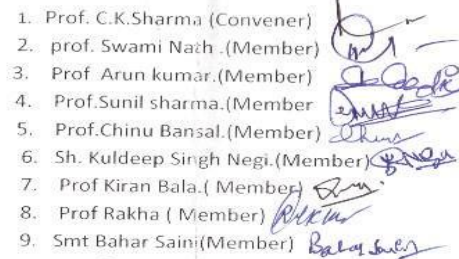 1. Prof. C.K.Sharma (Convener)
2. prof. Swami Nath .(Member)
3. Prof Arun kumar.(Member)
4. Prof.Sunil sharma.(Member
5. Prof.Chinu Bansal.(Member)
6. Sh. Kuldeep Singh Negi.(Member)
7. Prof Kiran Bala.( Member)
8. Prof Rakha ( Member)
9. Smt Bahar Saini(Member) Bahar Saini